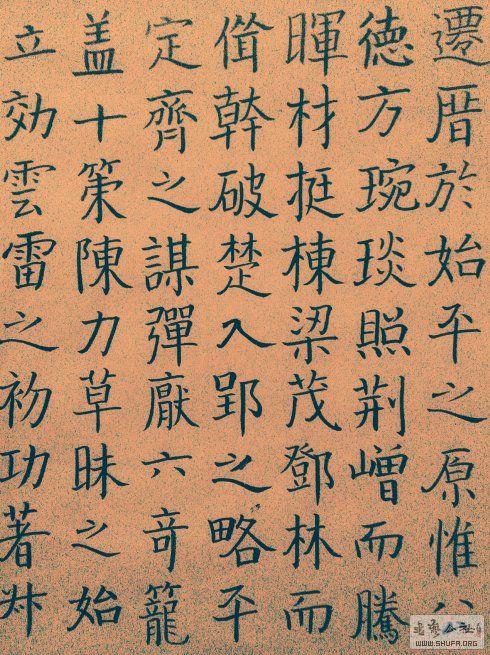 遷厝於始平之原惟
德方琬琰照荆嶒而騰
暉材挺棟梁茂鄧林而
幹破楚入郢之略平
定齊之謀彈厭六奇籠
盖十策陳力草昧之始
立効雲雷之初功著艸
WWW.SHUFA.ORG